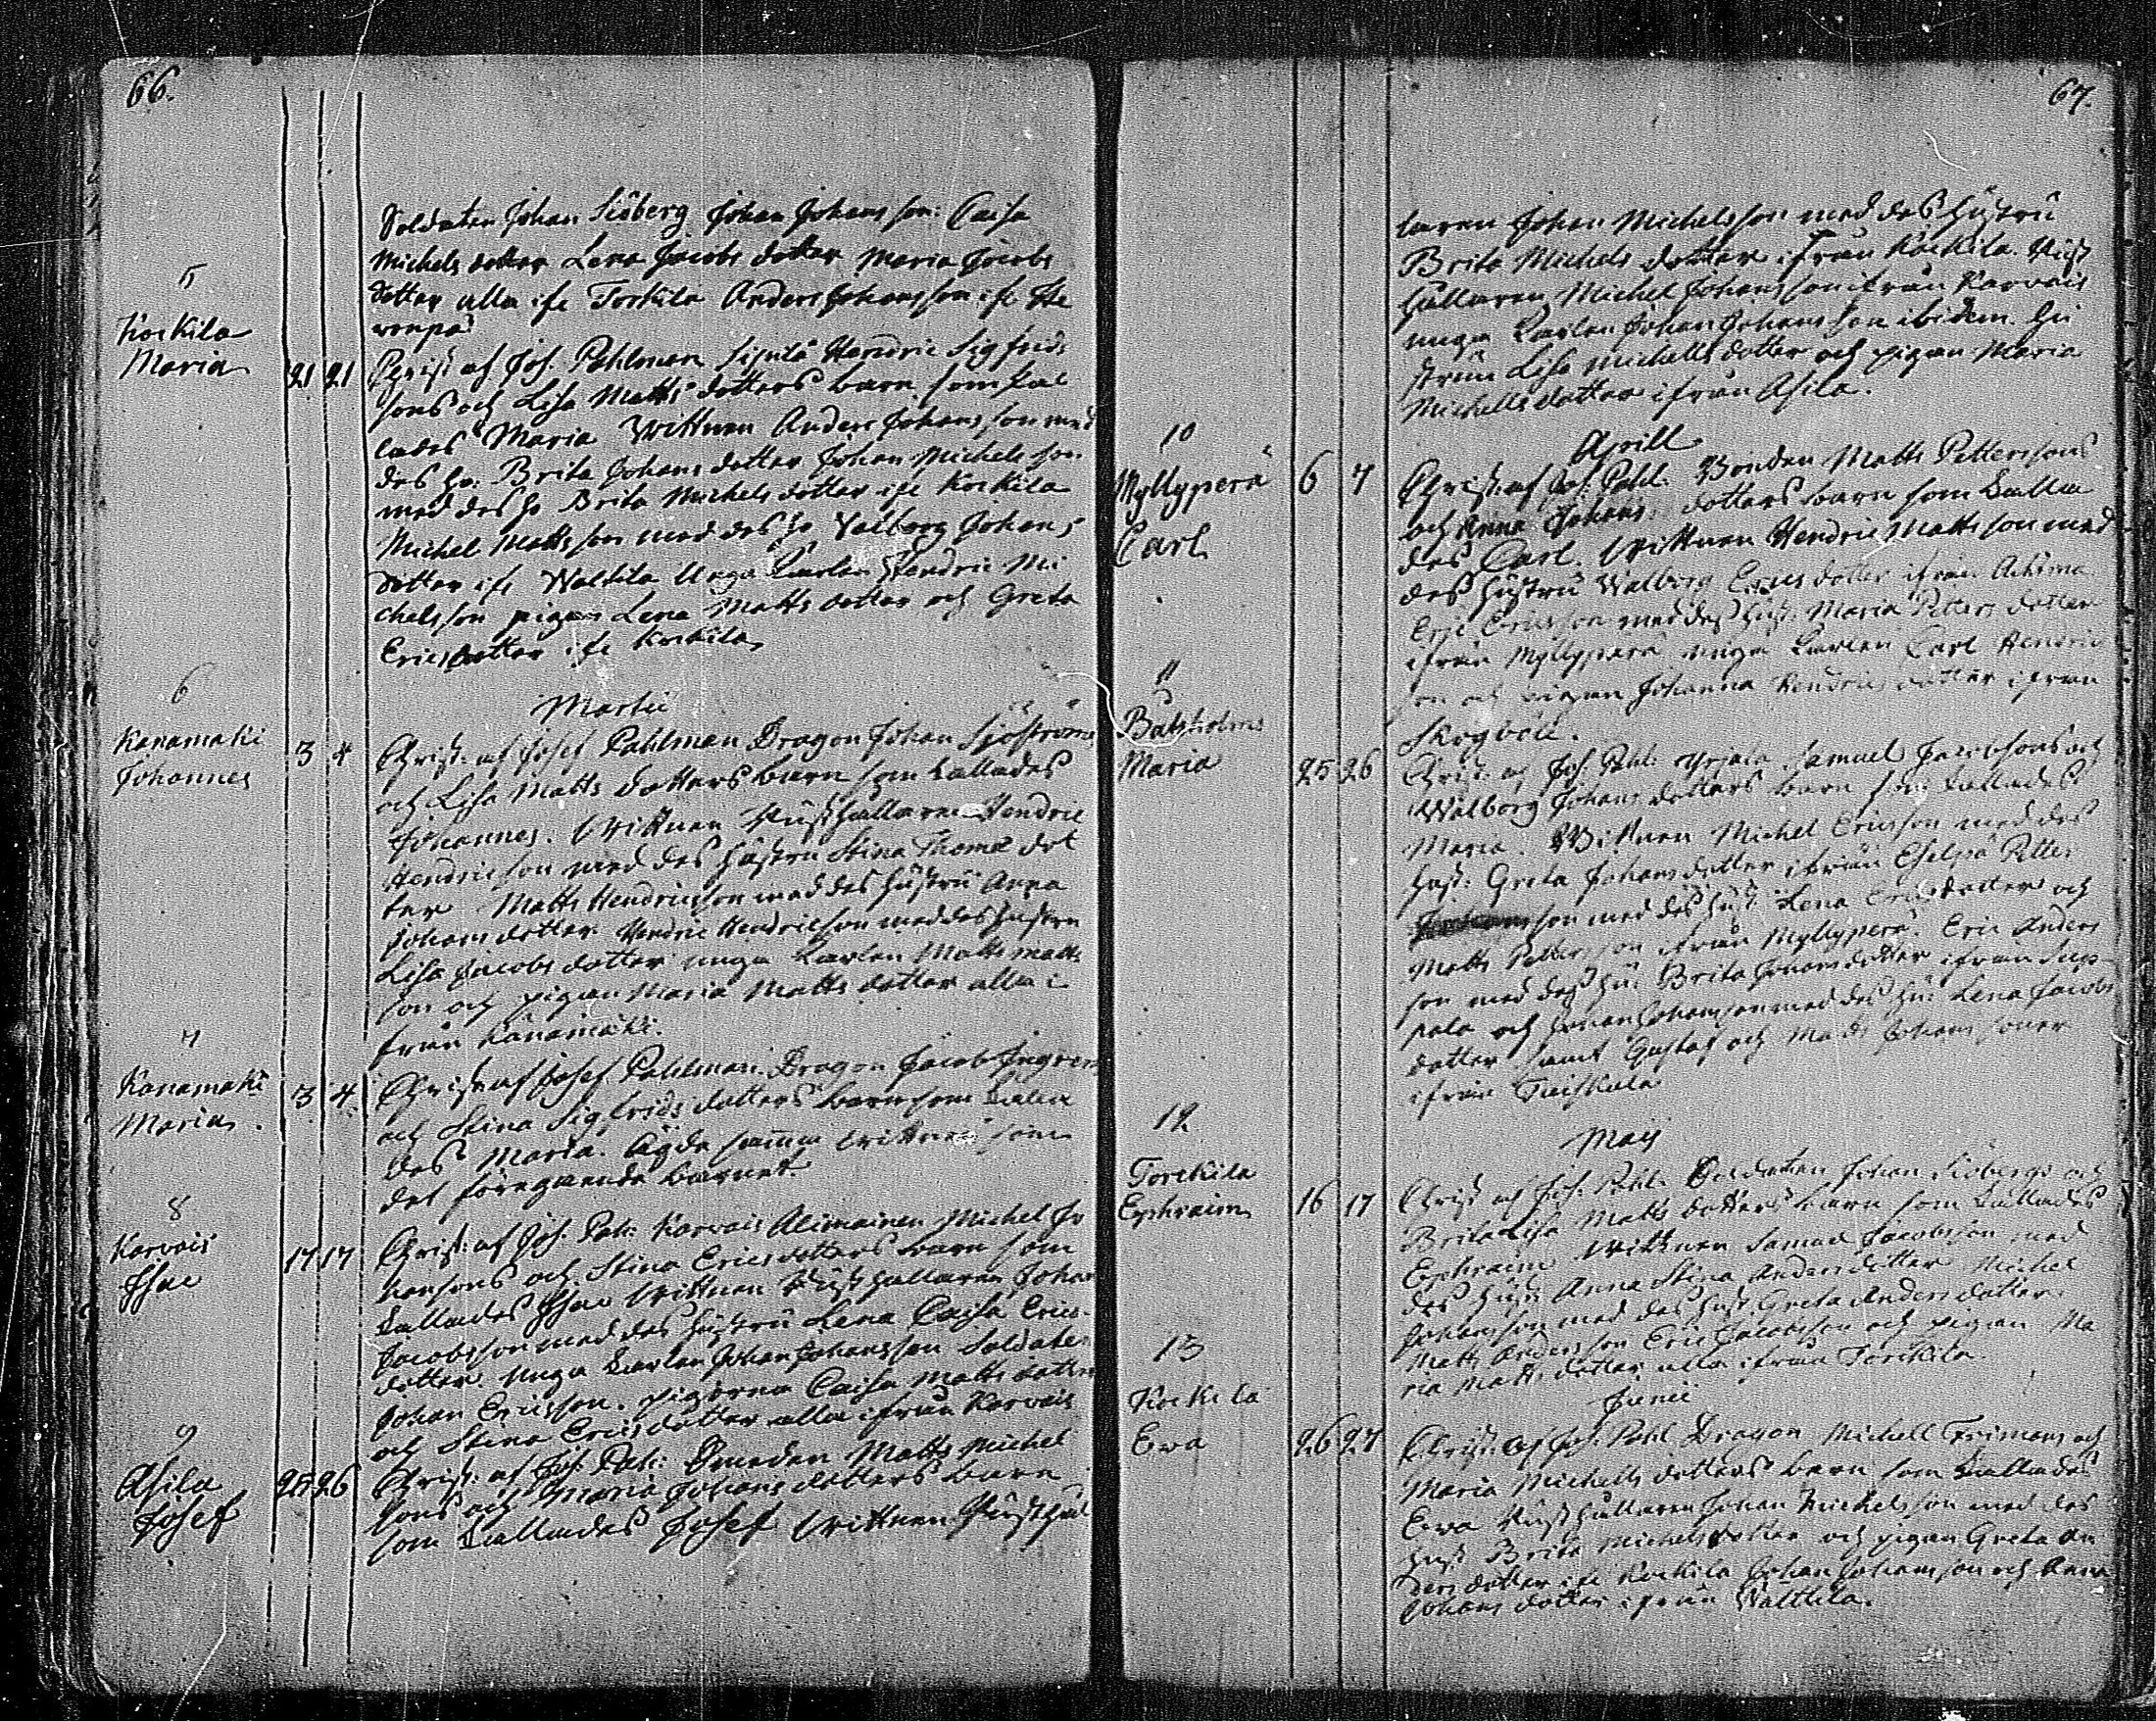 66.
Soldaten Johan Siöberg Johan Johansson: Caisa
Michels dotter Lena Jacobs dotter Maria Jacobs
dotter alla ifr Torkila Anders Johansson ifr
5
Kockila
Maria
21 21
Christ af Jos. Pahlman Hendric Sigfrids
sons och Lisa Matts dotters barn som kal
lades Maria Wittnen Anders Johansson med
des hu: Brita Johans dotter Johan Michelsson
med des hu Brita Michels dotter ifr Kockila
Michel Mattsson med des hu Valborg Johans
dotter ifr Waltila Unga Karlen Hendric Mi
chelsson pigan Lena Matts dotter och Greta
Ericsdotter ifr Kockila
Martii
6
Kanamäki
Johannes
3 4
Christ: af Josef Pahlman Dragon Johan Sjöströms
och Lisa Matts dotters barn som kallades
Johannes. Wittnen Rusthållaren Hendric
Hendricsson med des hustru Stina Thomæ dot
ter Matts Hendricsson med des hustru Anna
Johans dotter Hendric Hendricsson med des hustru
Lisa Jacobs dotter unga karlen Matts Matts
son och pigan Maria Matts dotter alla i
från Kanamäki.
7
Kanamäki
Maria.
3 4
Christ: af Josef Pahlman Dragon Jacob
och Stina Sigfrids dotters barn som kalla
des Maria. ägde samma wittnen som
det föregående barnet.
8
Karvois
Isac
17 17
Christ: af Jos. Pah: Karvois Alimainen Michel Jo
hansons och Stina Erics dotters barn som
kallades Isac Wittnen Rusthållaren Johan
Jacobsson med des hustru Lena Caisa Erics
dotter. unga karlen Johan Johansson Soldaten
Johan Ericsson. pigorna Caisa Matts dotter
och Stina Erics dotter alla ifrån Karvois
9
Asila
Josef
25 26
Christ: af Jos. Pah: Matts Michel
sons och Maria Johans dotters barn
som kallades Josef Wittnen Rusthål
67.
laren Johan Michelsson med des hustru
Brita Michels dotter ifrån Kockila. Rust
hållaren Michel Johansson ifrån Karvois
unga karlen Johan Johansson ibidem. Hu
strun Lisa Michells dotter och pigan Maria
Michells dotter ifrån Asila.
Aprill
10
Myllyperä
Carl
6 7
Christ: af Jos. Pahl: Bonden Matts Petterssons
och Anna Johans: dotters barn som kalla
des Carl. Wittnen Hendric Mattsson med
des hustru Walborg Erics dotter ifrån
Eric Ericsson med des hust: Maria Petters dotter
ifrån Myllyperä unga karlen Carl Hendric
son och pigan Johanna Hendrics dotter ifrån
Skogböle.
11
Båtsholm
Maria
25 26
Christ: af Jos. Pahl: Samuel Jacobsons och
Walborg Johans dotters barn som kallades
Maria. Wittnen Michel Ericsson med des
hust: Greta Johans dotter ifrån Petter
son med des hust: Lena Erics dotter och
Matts Pettersson ifrån Myllyperä. Eric Anders
son med des hu: Brita Johans dotter ifrån Sep
pälä och Johan Johansson med des hu: Lena Jacobs
dotter samt Gustaf och Matts Johans söner
ifrån
Maij
12
Torckila
Ephraim
16 17
Christ: af Jos. Pahl: Soldaten Johan Siöbergs och
Brita Lisa Matts dotters barn som kallades
Ephraim Wittnen Samuel Jacobsson med
des hust Anna Stina Anders dotter Michel
Johansson med des hust Greta Anders dotter.
Matts Andersson Eric Jacobsson och pigan Ma
ria Matts dotter alla ifrån Torckila.
Junii
13
Kockila
Ewa
26 27
Christ: af Jos. Pahl Dragon Michell Frimans och
Maria Michells dotters barn som kallades
Ewa Rusthållaren Johan Michelsson med des
hust Brita Michels dotter och pigan Greta An
ders dotter ifr Kockila Johan Johansson och Anna
Johans dotter ifrån Walttila.